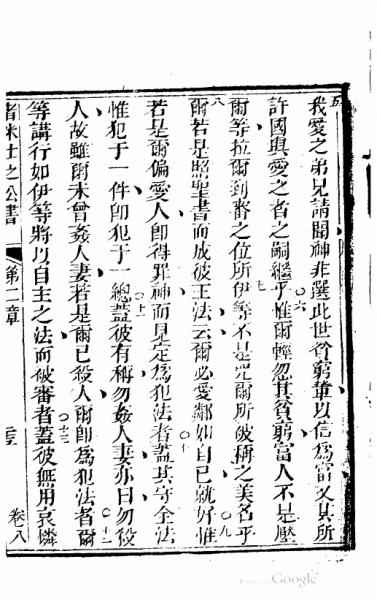 五
我愛之弟兄請聞神非選此世貧窮輩以信爲富又其所
許國與愛之者之嗣繼乎
六
惟爾輕忽其貧窮富人不是壓
爾等拉爾到審之位所
七
伊等不是咒爾所被稱之美名乎
八
爾若是照聖書而成彼王法云爾必愛鄰如自己就好
九
惟
若是爾偏愛人卽得罪神而見定爲犯法者
十
蓋其守全法
惟犯于一件卽犯于一總
十一
蓋彼有稱勿姦人妻亦曰勿殺
人故雖爾未曾姦人妻若是爾已殺人爾卽爲犯法者
十二
爾
等講行如伊等將以自主之法而被審者
十三
蓋彼無用哀憐
者米士之公書
第二章
三
卷八
Google